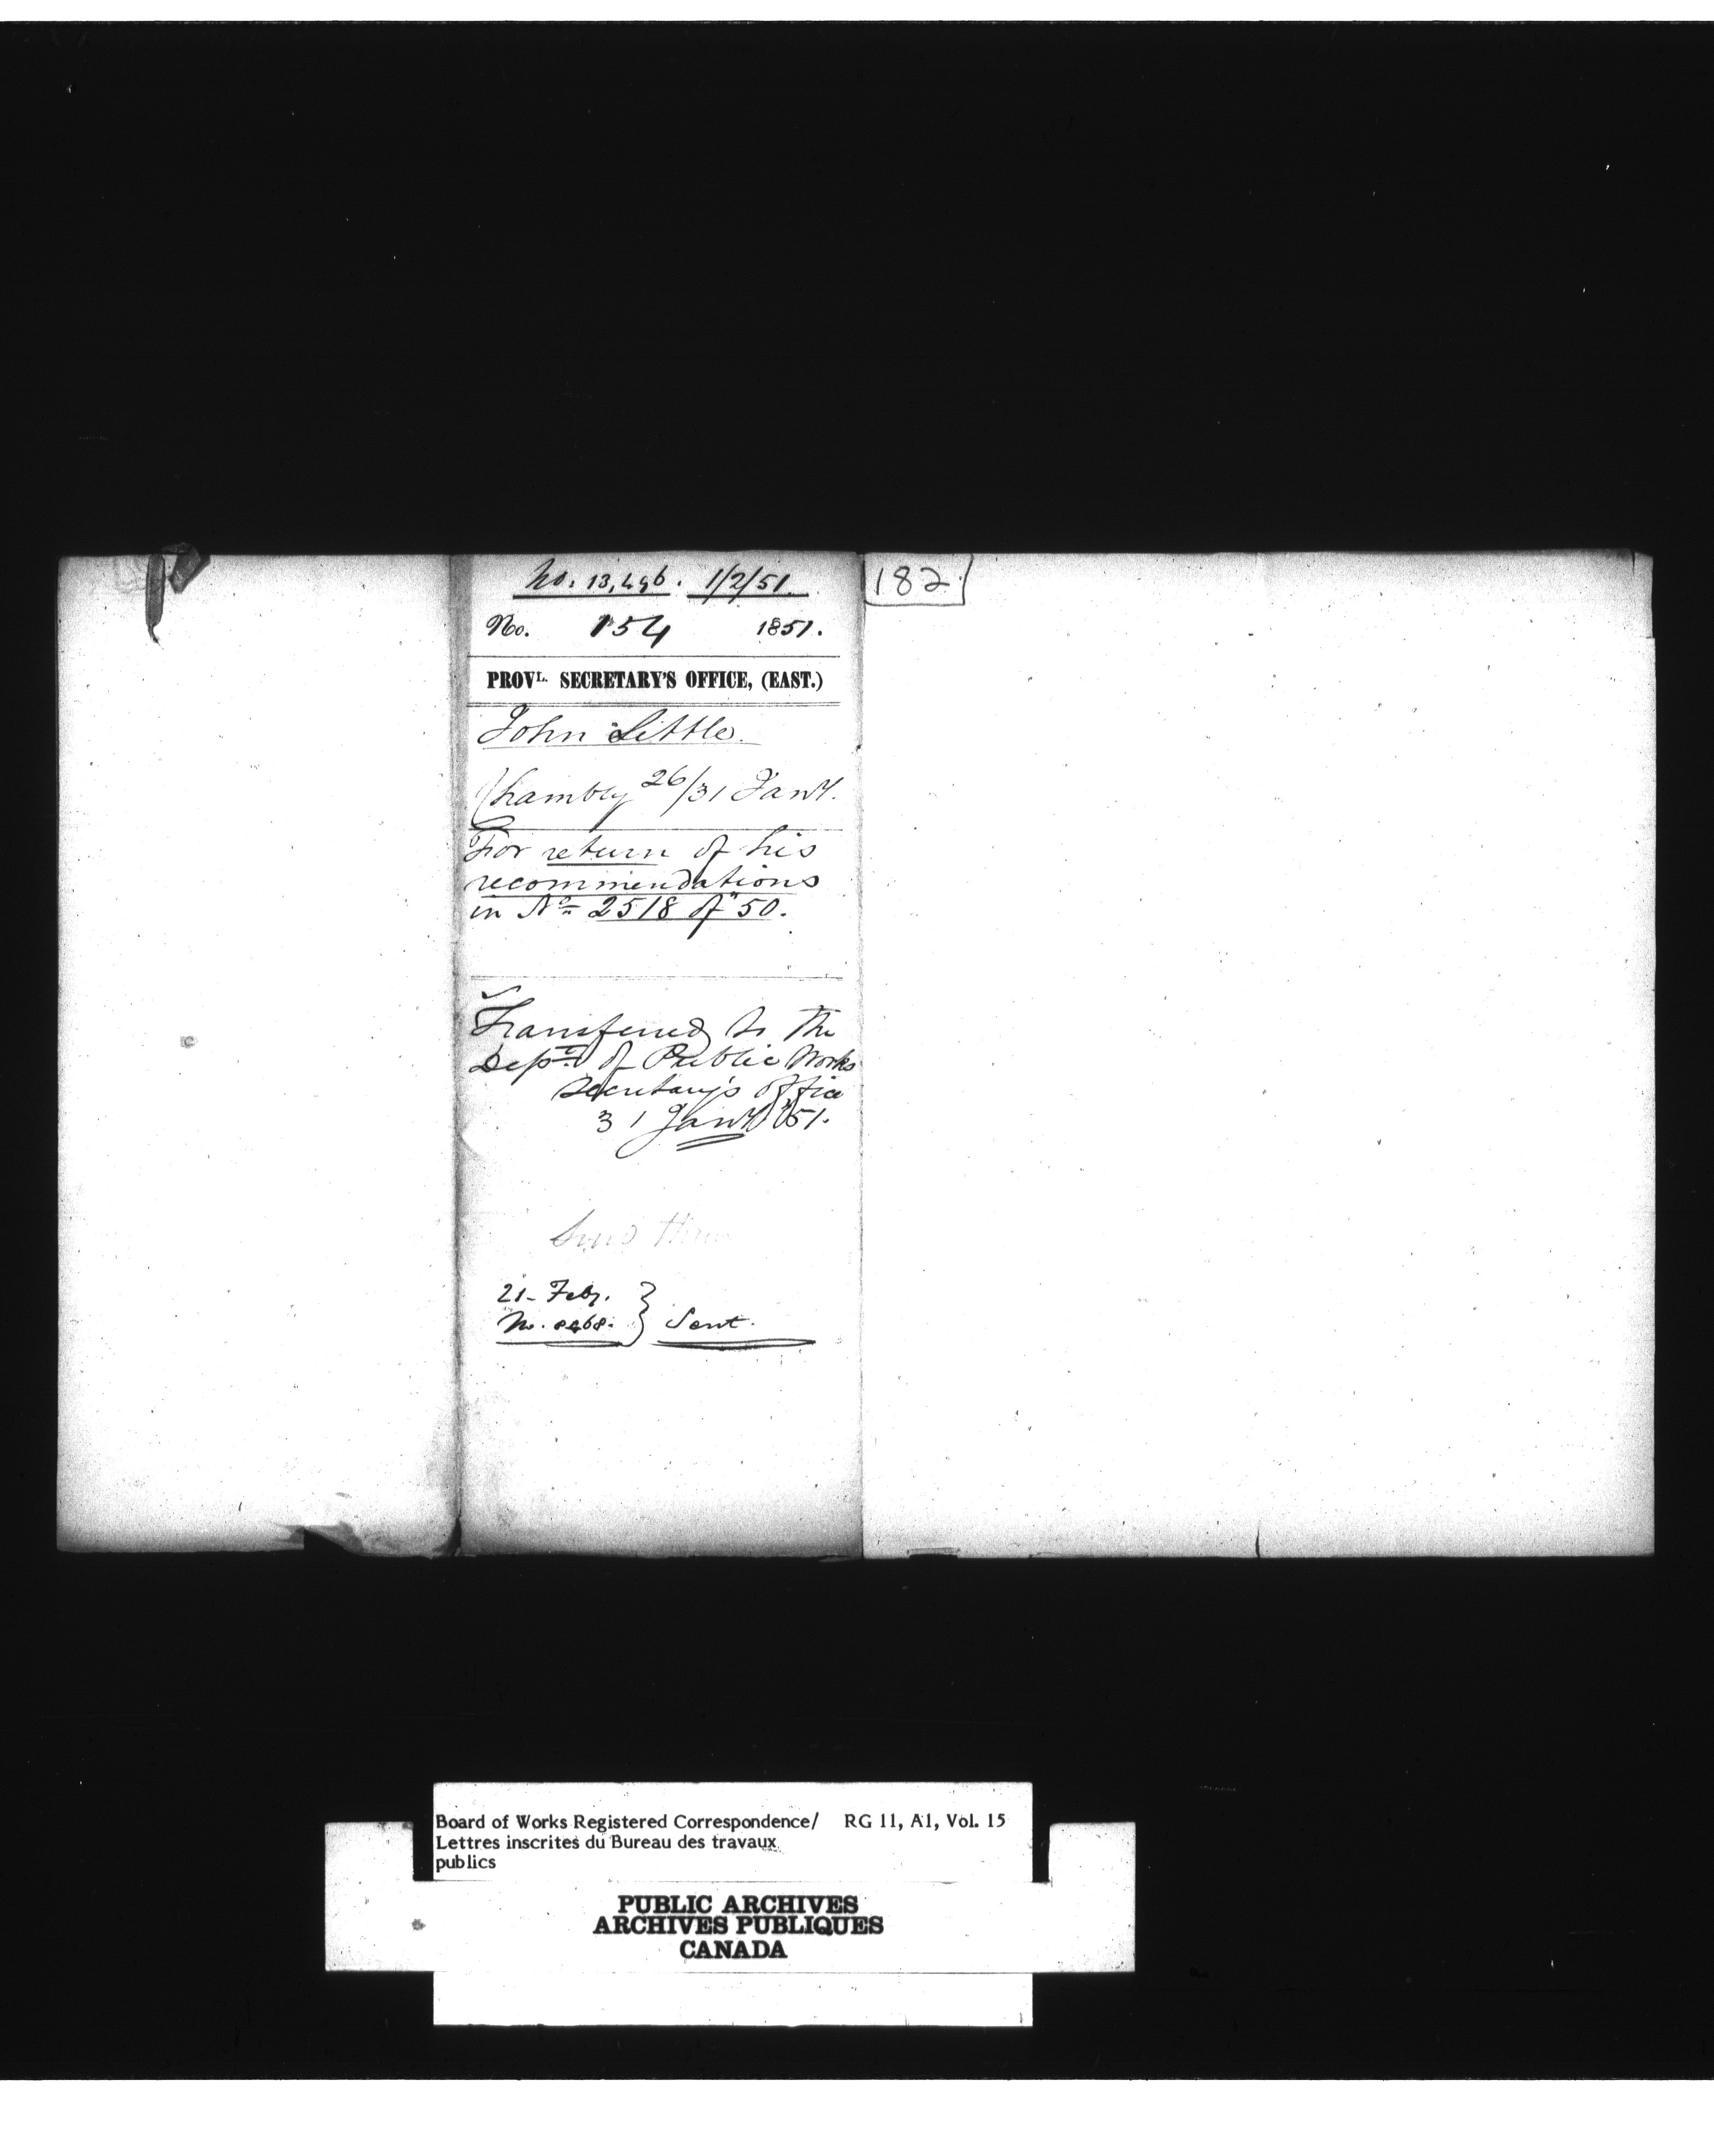 No. 13,496. 1/2/51.
182
No. 154 1851.
PROVL. SECRETARY'S OFFICE, (EAST.)
John Little.
Chambly 26/31 Jany.
For return of his
recommendations
in No. 2518 of "50.
Transferred to the
Dept. of Public Works
Secretary's Office
31 Jany "51.
Send them
21- Feby.
No. 8468. } Sent.
Board of Works Registered Correspondence/ RG 11, A1, Vol. 15
Lettres inscrites du Bureau des travaux
publics
PUBLIC ARCHIVES
ARCHIVES PUBLIQUES
CANADA